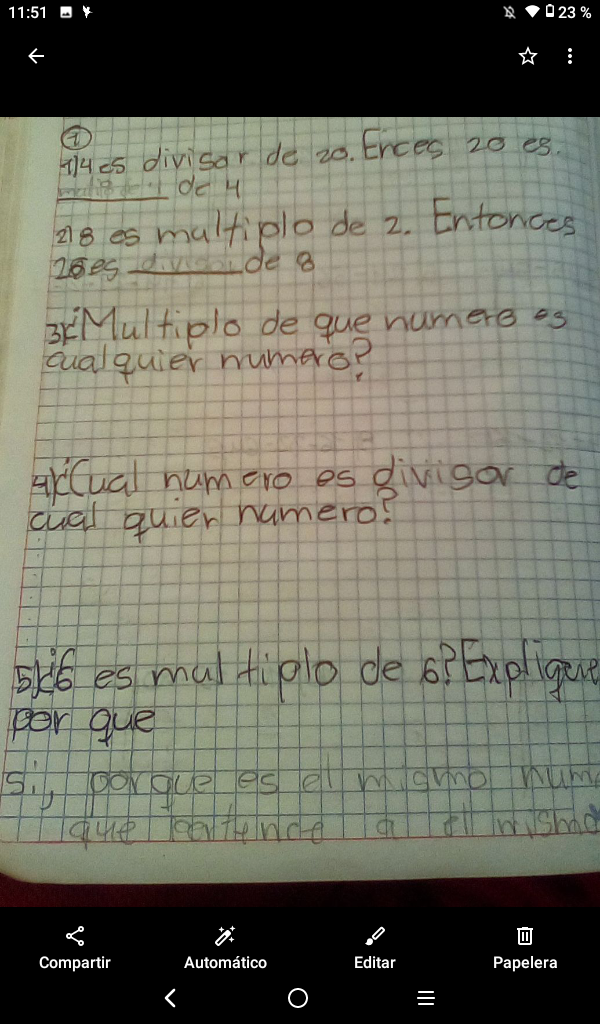 11:51 23 %
1
1) 4 es divisor de 20. Erces 20 es.
multiplo de 4
2) 8 es multiplo de 2. Entonces
2 es divisor de 8
3) ¿Multiplo de que numero es
cualquier numero?
4) ¿Cual numero es divisor de
cual quier numero?
5) ¿6 es multiplo de 6? Explique
por que
Si, porque es el mismo num
que pertence a el mismo
Compartir Automático Editar Papelera